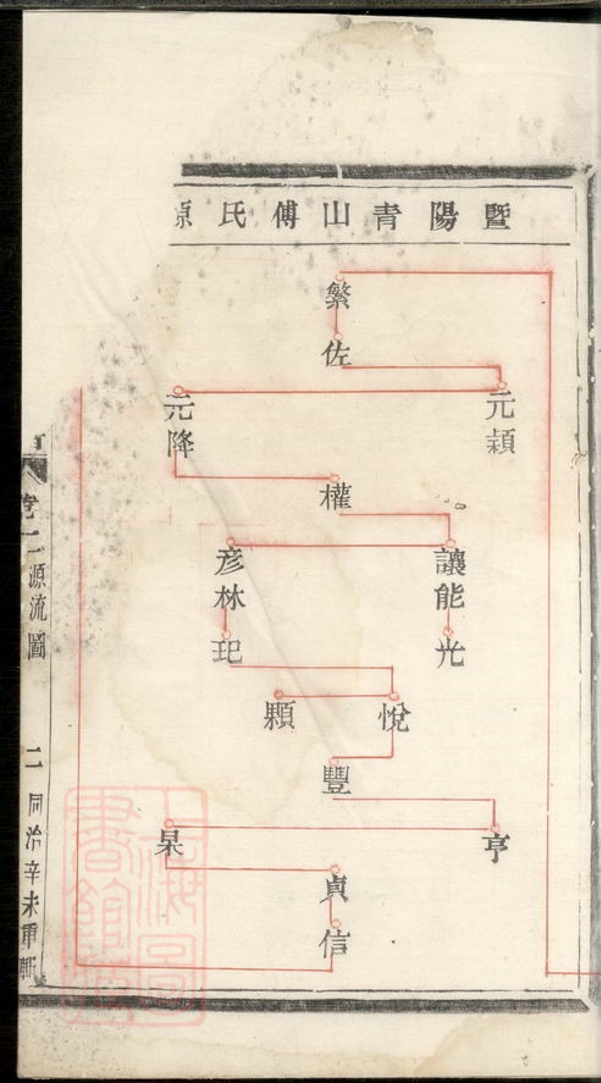 暨陽青山傅氏
繁
佐
元穎
元降
權
讓能
彥林
光
玘
悅
顆
豐
亨
杲
貞
信
卷二源流圖
二
同治辛未重
上海圖
書館藏